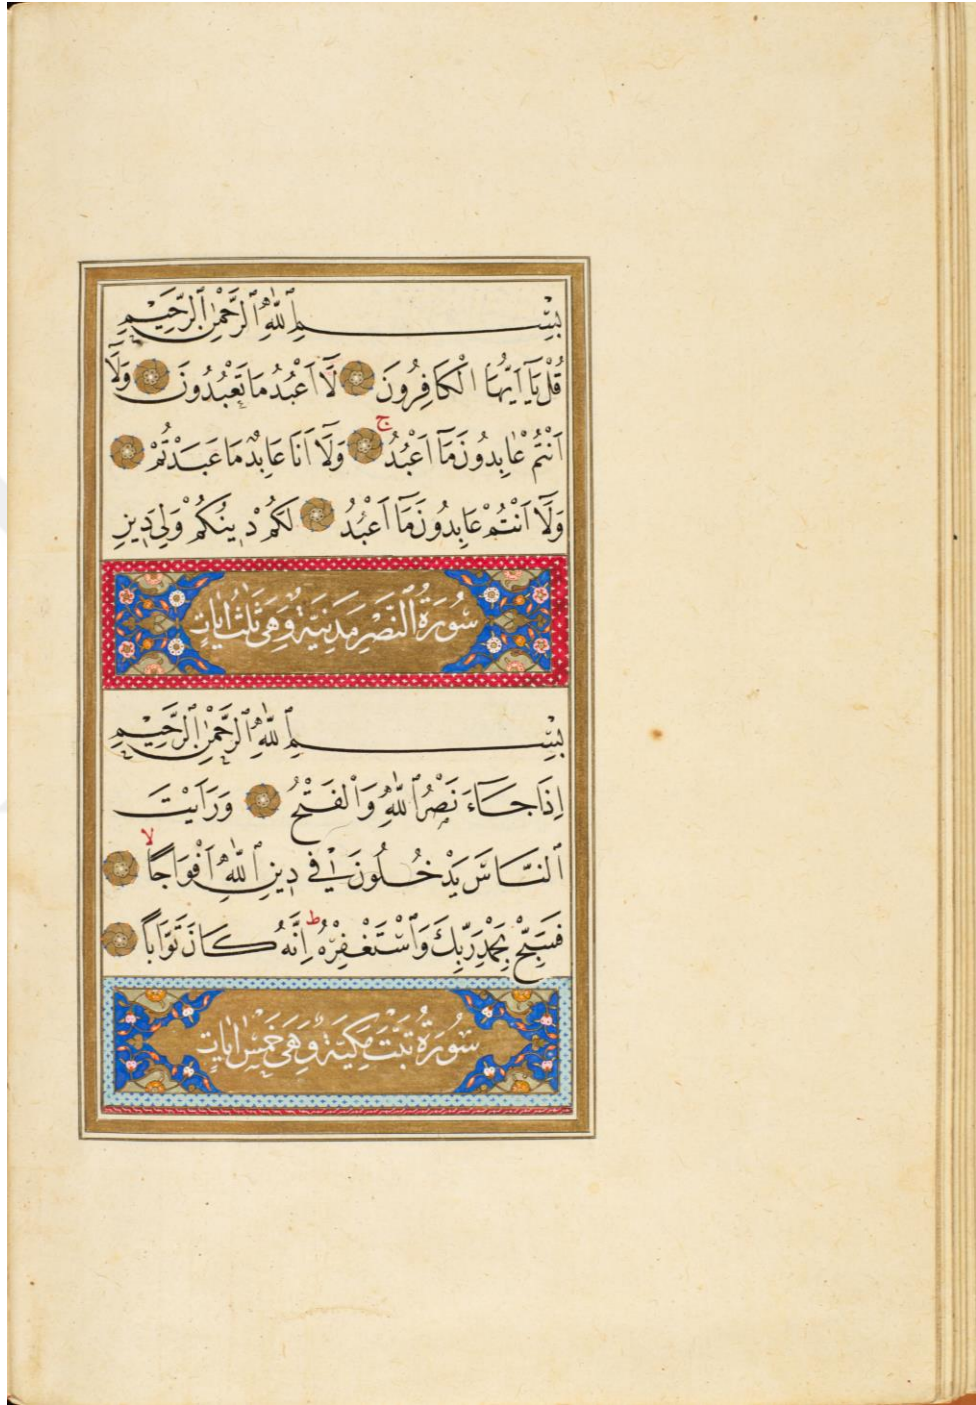 بِسْمِ اللّٰهِ الرَّحْمٰنِ الرَّحِيمِ
قُلْ يَٓا اَيُّهَا الْكَافِرُونَ لَٓا اَعْبُدُ مَا تَعْبُدُونَ وَلَٓا
اَنْتُمْ عَابِدُونَ مَٓا اَعْبُدُ ج وَلَٓا اَنَا عَابِدٌ مَا عَبَدْتُمْ
وَلَٓا اَنْتُمْ عَابِدُونَ مَٓا اَعْبُدُ لَكُمْ دِينُكُمْ وَلِيَ دِينِ
سُورَةُ النَّصْرِ مَدَنِيَّةٌ وَهِيَ ثَلٰثُ اٰيَاتٍ
بِسْمِ اللّٰهِ الرَّحْمٰنِ الرَّحِيمِ
اِذَا جَٓاءَ نَصْرُ اللّٰهِ وَالْفَتْحُ وَرَاَيْتَ
النَّاسَ يَدْخُلُونَ فِي دِينِ اللّٰهِ اَفْوَاجًا لا
فَسَبِّحْ بِحَمْدِ رَبِّكَ وَاسْتَغْفِرْهُ ط اِنَّهُ كَانَ تَوَّابًا
سُورَةُ تَبَّتْ مَكِّيَّةٌ وَهِيَ خَمْسُ اٰيَاتٍ